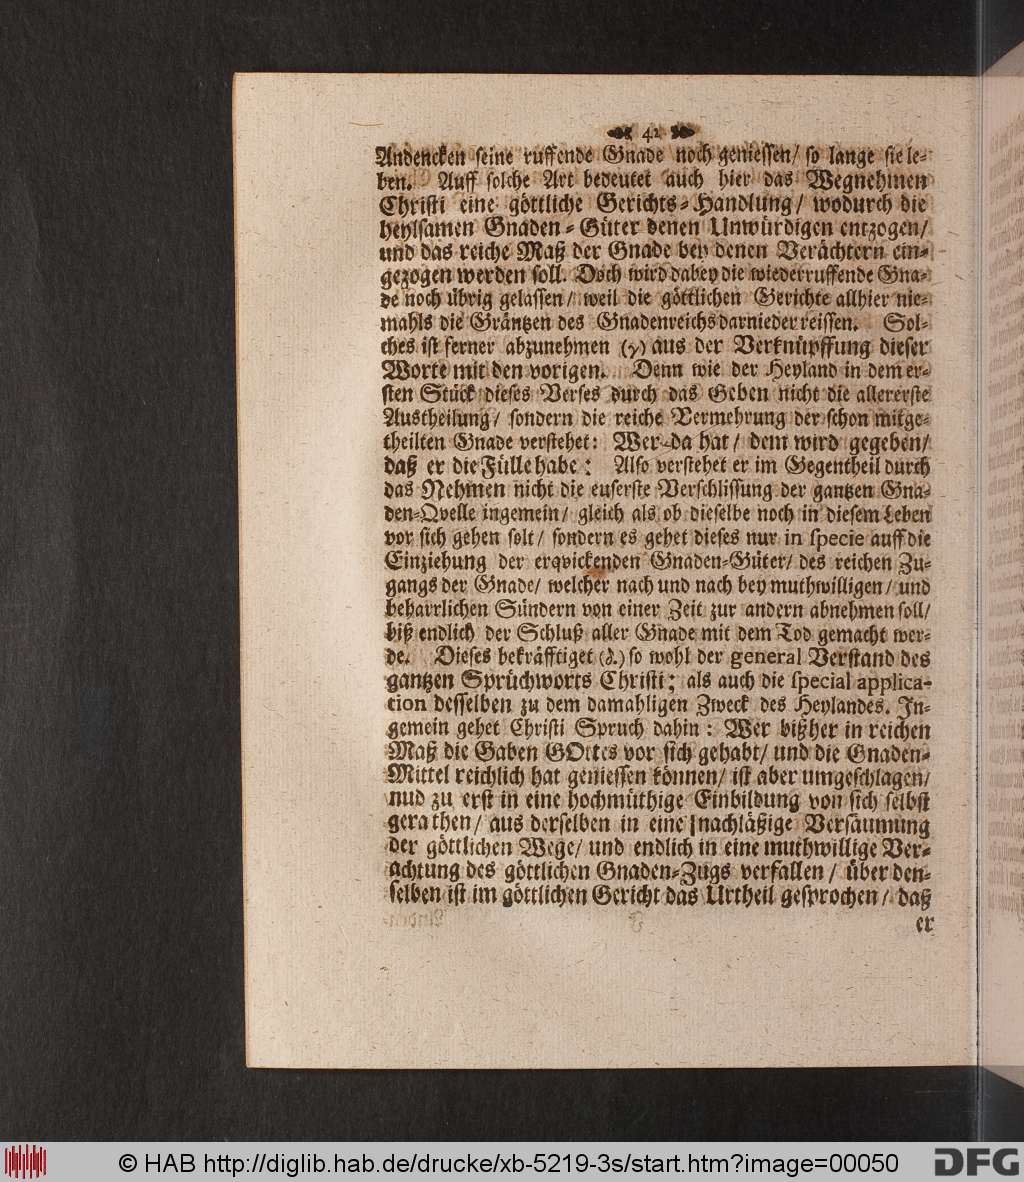 42
Andencken seine ruffende Gnade noch geniessen/ so lange sie le-
ben. Auff solche Art bedeutet auch hier das Wegnehmen
Christi eine göttliche Gerichts-Handlung/ wodurch die
heylsamen Gnaden-Güter denen Unwürdigen entzogen/
und das reiche Maß der Gnade bey denen Verächtern ein-
gezogen werden soll. Doch wird dabey die wiederruffende Gna-
de noch übrig gelassen/ weil die göttlichen Gerichte allhier nie-
mahls die Gräntzen des Gnadenreichs darnieder reissen. Sol-
ches ist ferner abzunehmen (γ) aus der Verknüpffung dieser
Worte mit den vorigen. Denn wie der Heyland in dem er-
sten Stück dieses Verses durch das Geben nicht die allererste
Austheilung/ sondern die reiche Vermehrung der schon mitge-
theilten Gnade verstehet: Wer da hat/ dem wird gegeben/
daß er die Fülle habe: Also verstehet er im Gegentheil durch
das Nehmen nicht die euserste Verschlissung der gantzen Gna-
den-Qvelle ingemein/ gleich als ob dieselbe noch in diesem Leben
vor sich gehen solt/ sondern es gehet dieses nur in specie auff die
Einziehung der erqvickenden Gnaden-Güter/ des reichen Zu-
gangs der Gnade/ welcher nach und nach bey muthwilligen/ und
beharrlichen Sündern von einer Zeit zur andern abnehmen soll/
biß endlich der Schluß aller Gnade mit dem Tod gemacht wer-
de. Dieses bekräfftiget (δ.) so wohl der general Verstand des
gantzen Sprüchworts Christi; als auch die special applica-
tion desselben zu dem damahligen Zweck des Heylandes. In-
gemein gehet Christi Spruch dahin: Wer bißher in reichen
Maß die Gaben GOttes vor sich gehabt/ und die Gnaden-
Mittel reichlich hat geniessen können/ ist aber umgeschlagen/
nud zu erst in eine hochmüthige Einbildung von sich selbst
gerathen/ aus derselben in eine nachläßige Versäumung
der göttlichen Wege/ und endlich in eine muthwillige Ver-
achtung des göttlichen Gnaden-Zugs verfallen/ über den-
selben ist im göttlichen Gericht das Urtheil gesprochen/ daß
er
© HAB http://diglib.hab.de/drucke/xb-5219-3s/start.htm?image=00050
DFG